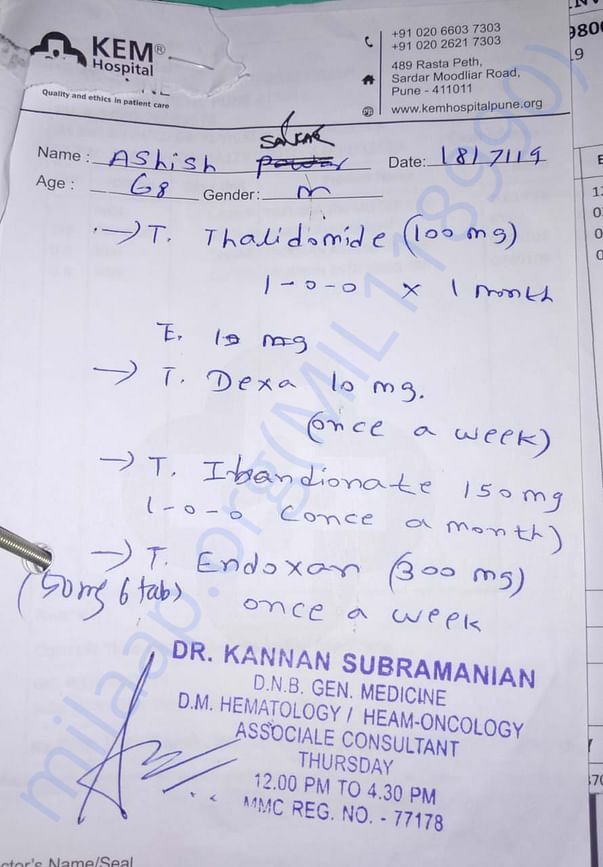 KEM®
Hospital
Quality and ethics in patient care
+91 020 6603 7303
+91 020 2621 7303
489 Rasta Peth,
Sardar Moodliar Road,
Pune - 411011
www.kemhospitalpune.org
Name : Ashish Date: 18/7/19
Age : 68 Gender: M
→ T. Thalidomide (100 mg)
1-0-0 x 1 month
→ T. Dexa 10 mg.
(once a week)
→ T. Ibandionate 150mg
1-0-0 (once a month)
→ T. Endoxan (300 mg)
(50mg 6 tab) once a week
DR. KANNAN SUBRAMANIAN
D.N.B. GEN. MEDICINE
D.M. HEMATOLOGY / HEAM-ONCOLOGY
ASSOCIALE CONSULTANT
THURSDAY
12.00 PM TO 4.30 PM
MMC REG. NO. - 77178
ctor's Name/Seal
milaap.org(MIL118990)